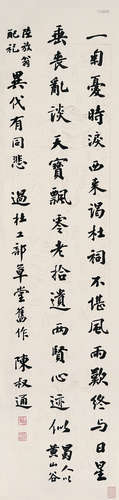 一匊憂時淚西來謁杜祠不堪風雨歎終與日星
垂喪亂談天寶飄零老拾遺兩賢心迹似蜀人以黃山谷
陸放翁配祀異代有同悲 過杜工部草堂舊作 陳叔通